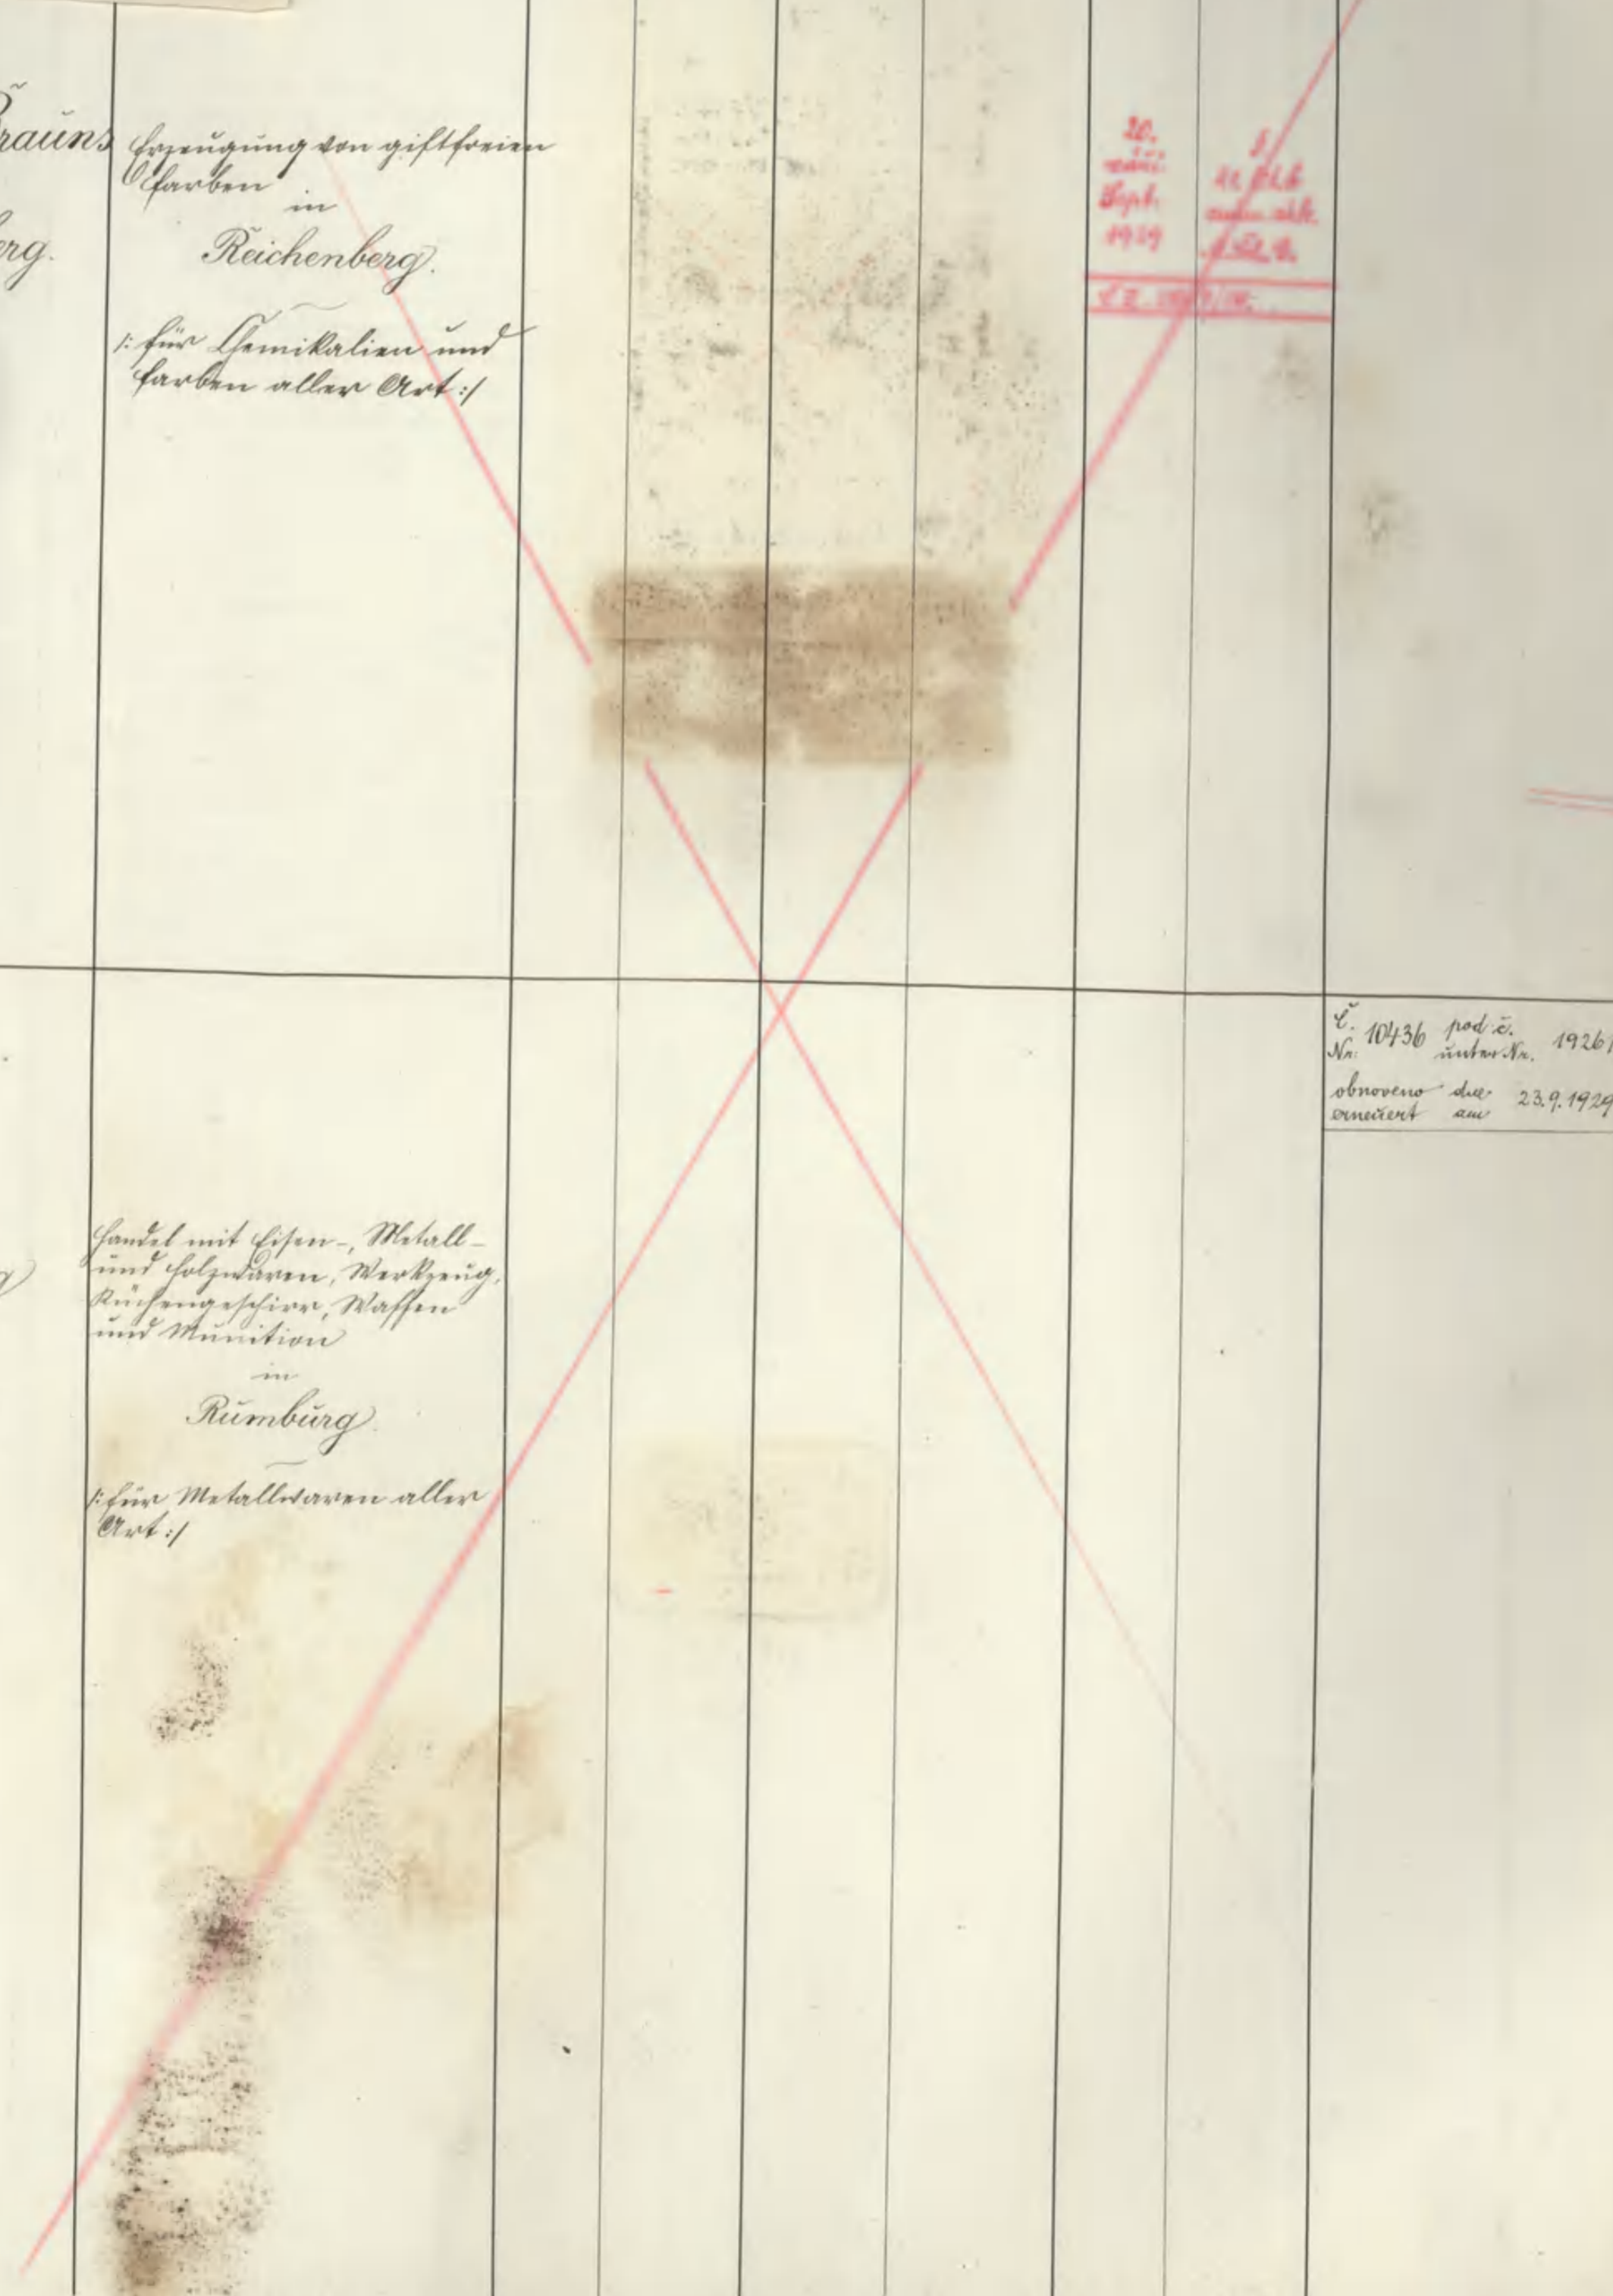 Erzeugung von giftfreien
Farben
in
Reichenberg.
/: für Chemikalien und
Farben aller Art :/
20.
Sept.
1929
Č. 10436 pod č. 1926/
Nr. unter Nr.
obnoveno dne 23.9.1929
erneuert am
Handel mit Eisen-, Metall-
und Holzwaren, Werkzeug,
Küchengeschirr, Waffen
und Munition
in
Rumburg.
/: für Metallwaren aller
Art :/